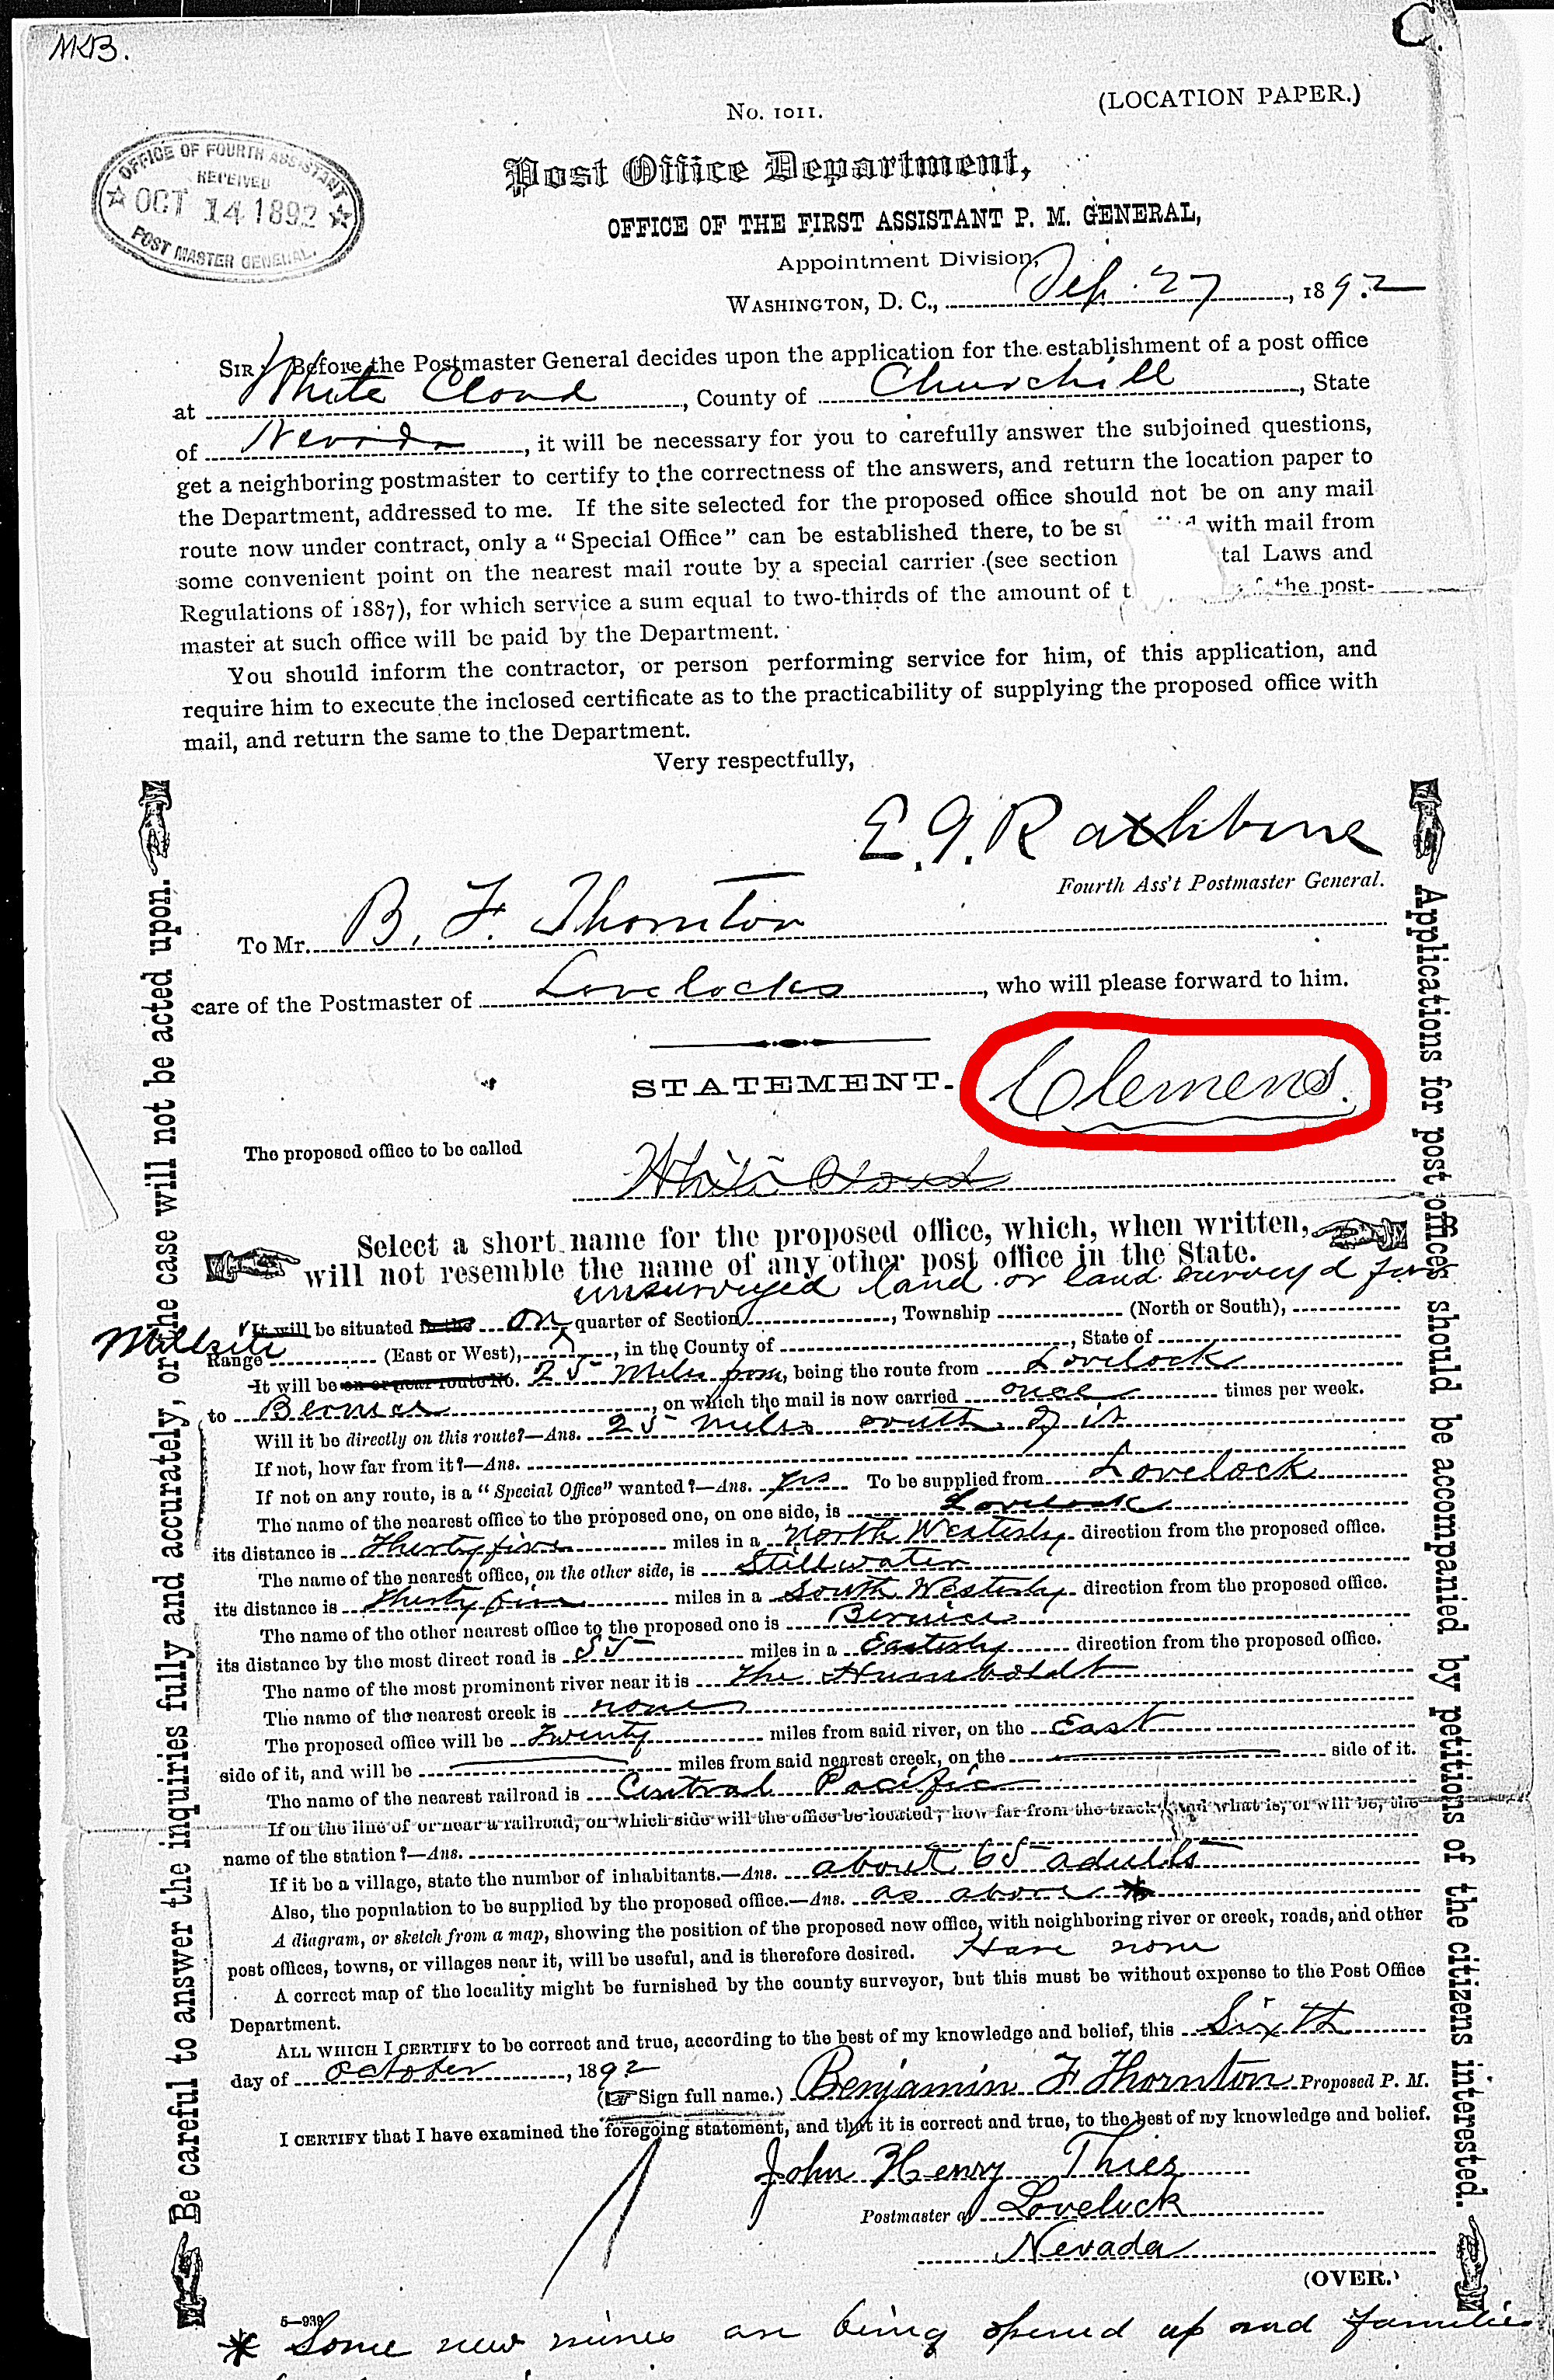 MKB.
C.
No. 1011.
(LOCATION PAPER.)
OFFICE OF FOURTH ASSISTANT
RECEIVED
OCT 14 1892
POST MASTER GENERAL.
Post Office Department,
OFFICE OF THE FIRST ASSISTANT P. M. GENERAL,
Appointment Division,
WASHINGTON, D. C., Sep. 27, 1892
SIR: Before the Postmaster General decides upon the application for the establishment of a post office
at White Cloud, County of Churchill, State
of Nevada, it will be necessary for you to carefully answer the subjoined questions,
get a neighboring postmaster to certify to the correctness of the answers, and return the location paper to
the Department, addressed to me. If the site selected for the proposed office should not be on any mail
route now under contract, only a "Special Office" can be established there, to be with mail from
some convenient point on the nearest mail route by a special carrier (see section tal Laws and
Regulations of 1887), for which service a sum equal to two-thirds of the amount of the post-
master at such office will be paid by the Department.
You should inform the contractor, or person performing service for him, of this application, and
require him to execute the inclosed certificate as to the practicability of supplying the proposed office with
mail, and return the same to the Department.
Very respectfully,
E. G. Rathbone
Fourth Ass't Postmaster General.
To Mr. B. F. Thornton
care of the Postmaster of Lovelocks, who will please forward to him.
STATEMENT. Clemens.
The proposed office to be called White Cloud
Select a short name for the proposed office, which, when written,
will not resemble the name of any other post office in the State.
unsurveyed land or land surveyd for
It will be situated in the on quarter of Section, Township (North or South),
Millsite
Range (East or West), in the County of, State of
It will be on or near route No. 25 Miles from, being the route from Lovelock
to Bernice, on which the mail is now carried once times per week.
Will it be directly on this route?—Ans. 25 miles south of it
If not, how far from it?—Ans.
If not on any route, is a "Special Office" wanted?—Ans. yes To be supplied from Lovelock
The name of the nearest office to the proposed one, on one side, is Lovelock
its distance is Thirty five miles in a North Westerly direction from the proposed office.
The name of the nearest office, on the other side, is Stillwater
its distance is Thirty five miles in a South Westerly direction from the proposed office.
The name of the other nearest office to the proposed one is Bernice
its distance by the most direct road is 55 miles in a Easterly direction from the proposed office.
The name of the most prominent river near it is The Humboldt
The name of the nearest creek is none
The proposed office will be Twenty miles from said river, on the East
side of it, and will be miles from said nearest creek, on the side of it.
The name of the nearest railroad is Central Pacific
If on the line of or near a railroad, on which side will the office be located; how far from the track; and what is, or will be, the
name of the station?—Ans.
If it be a village, state the number of inhabitants.—Ans. about 65 adults
Also, the population to be supplied by the proposed office.—Ans. as above *
A diagram, or sketch from a map, showing the position of the proposed new office, with neighboring river or creek, roads, and other
post offices, towns, or villages near it, will be useful, and is therefore desired. Have none
A correct map of the locality might be furnished by the county surveyor, but this must be without expense to the Post Office
Department.
ALL WHICH I CERTIFY to be correct and true, according to the best of my knowledge and belief, this Sixth
day of October, 1892
(Sign full name.) Benjamin F Thornton Proposed P. M.
I CERTIFY that I have examined the foregoing statement, and that it is correct and true, to the best of my knowledge and belief.
John Henry Thies
Postmaster at Lovelock
Nevada
(OVER.)
5—939
* Some new mines are being opened up and families
Be careful to answer the inquiries fully and accurately, or the case will not be acted upon.
Applications for post offices should be accompanied by petitions of the citizens interested.